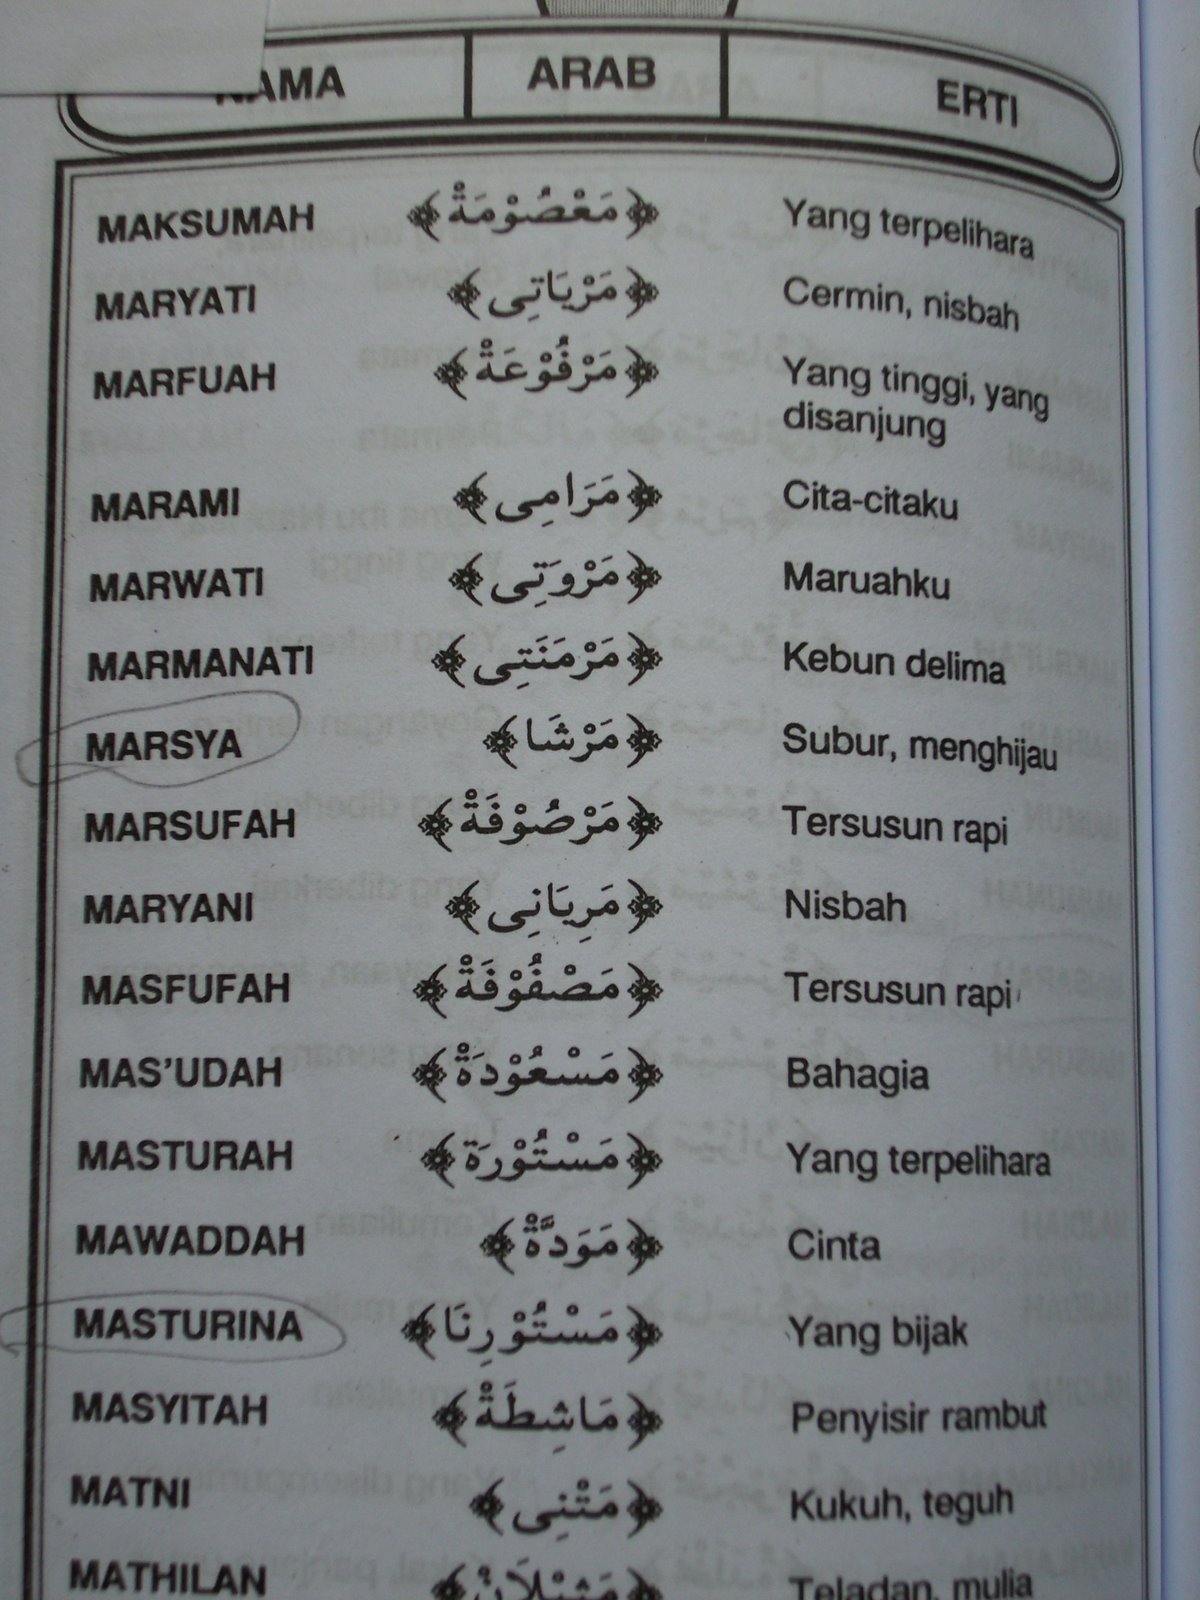 NAMA ARAB ERTI
MAKSUMAH ﴿مَعْصُوْمَةْ﴾ Yang terpelihara
MARYATI ﴿مَرْيَاتِى﴾ Cermin, nisbah
MARFUAH ﴿مَرْفُوْعَةْ﴾ Yang tinggi, yang
disanjung
MARAMI ﴿مَرَامِى﴾ Cita-citaku
MARWATI ﴿مَرْوَتِى﴾ Maruahku
MARMANATI ﴿مَرْمَنَتِى﴾ Kebun delima
MARSYA ﴿مَرْشَا﴾ Subur, menghijau
MARSUFAH ﴿مَرْصُوْفَةْ﴾ Tersusun rapi
MARYANI ﴿مَرِيَانِى﴾ Nisbah
MASFUFAH ﴿مَصْفُوْفَةْ﴾ Tersusun rapi
MAS'UDAH ﴿مَسْعُوْدَةْ﴾ Bahagia
MASTURAH ﴿مَسْتُوْرَة﴾ Yang terpelihara
MAWADDAH ﴿مَوَدَّةْ﴾ Cinta
MASTURINA ﴿مَسْتُوْرِنَا﴾ Yang bijak
MASYITAH ﴿مَاشِطَةْ﴾ Penyisir rambut
MATNI ﴿مَتْنِى﴾ Kukuh, teguh
MATHILAN ﴿مَثِيْلَانْ﴾ Teladan, mulia